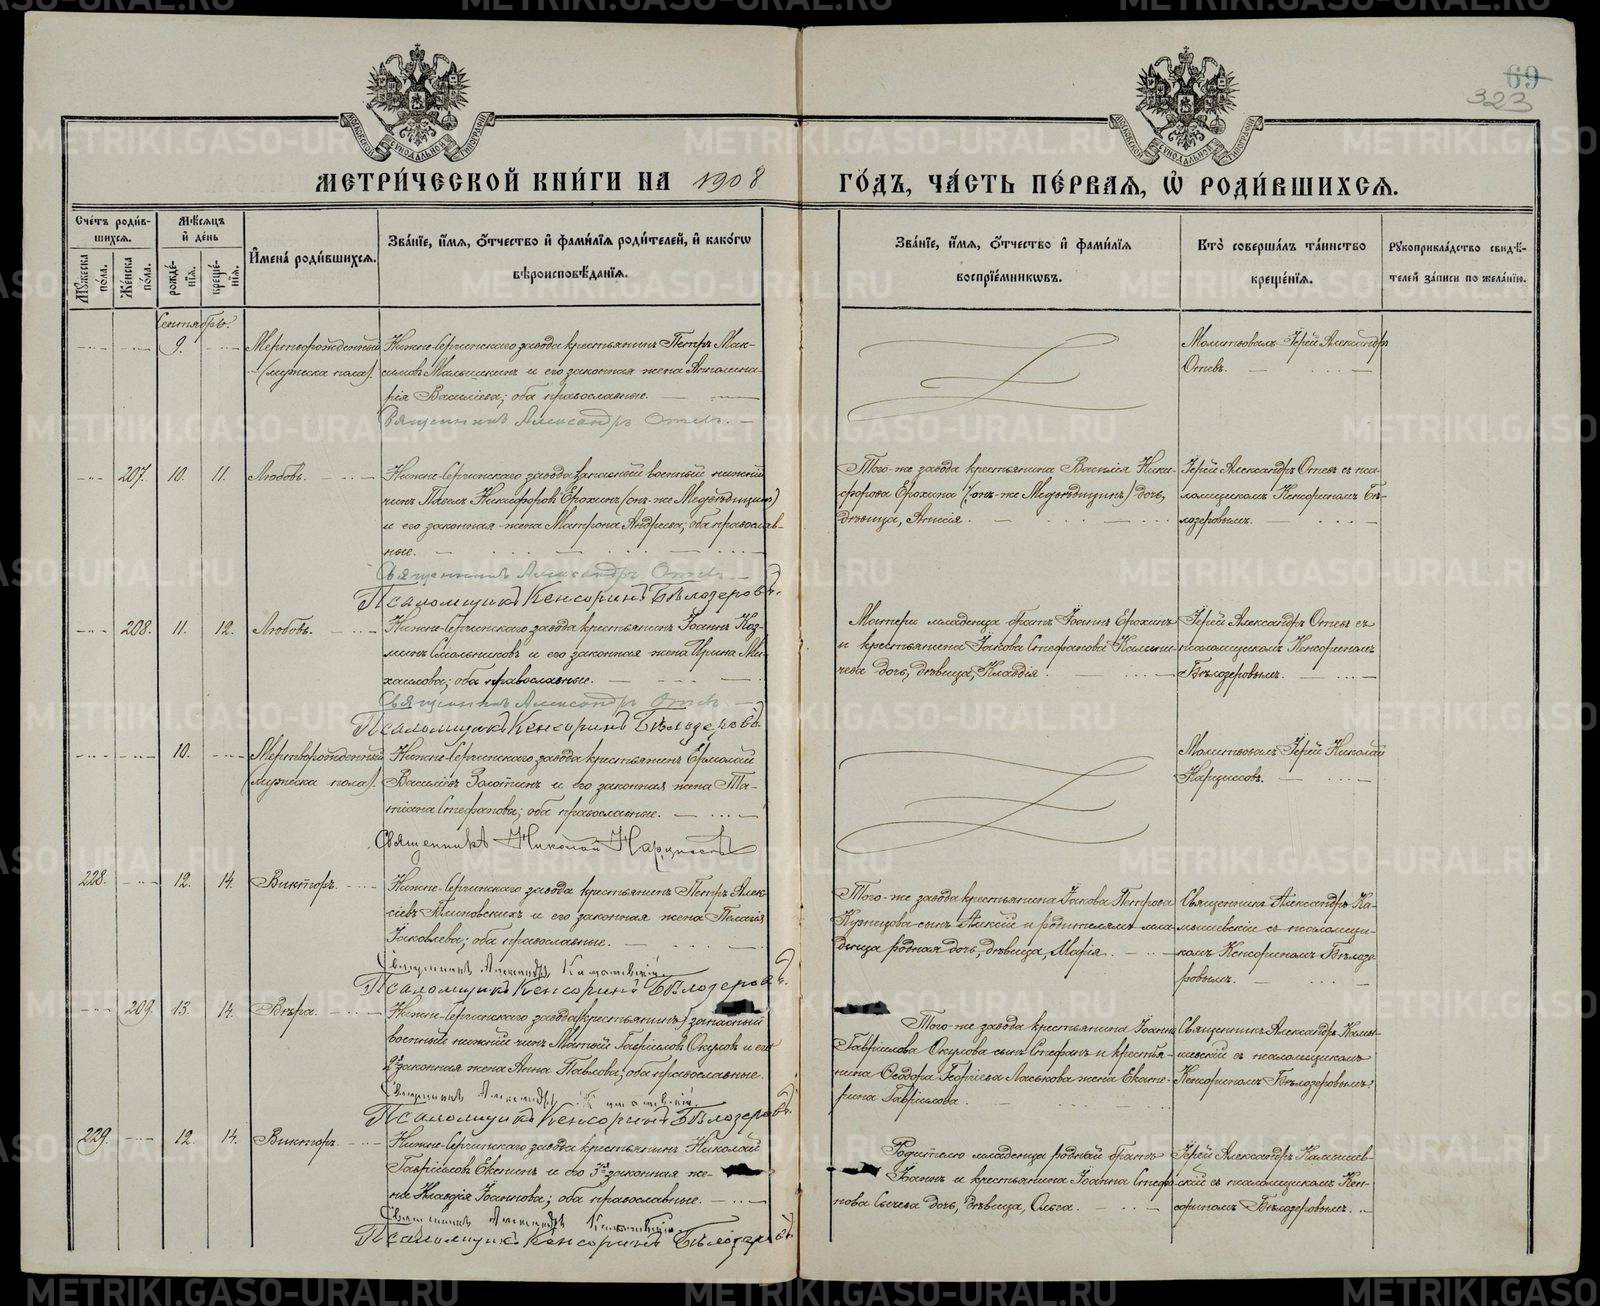 69
323
МЕТРИ́ЧЕСКОЙ КНИ́ГИ НА 1908
ГО́ДЪ, ЧА́СТЬ ПЕ́РВАЯ, Ѡ҆ РОДИ́ВШИХСЯ.
Сче́тъ роди́в-
шихся.
Мꙋжеска по́ла.
Же́нска по́ла.
Мѣ́сяцъ и҆ де́нь
рожде́нїя.
креще́нїя.
И҆мена̀ роди́вшихся.
Зва́нїе, и҆́мя, ѻ҆́тчество и҆ фами́лїя роди́телей, и҆ како́гѡ
вѣроисповѣ́данїя.
Зва́нїе, и҆́мя, ѻ҆́тчество и҆ фами́лїя
воспрїе́мникѡвъ.
Кто̀ соверша́лъ та́инство
креще́нїя.
Рꙋкоприкла́дство свидѣ́-
телей за́писи по жела́нїю.
Сентябрь.
9.
Мертворожденный
(мужеска пола).
Нижне-Сергинскаго завода крестьянинъ Петръ Мак-
симовъ Малышкинъ и его законная жена Апполина-
рія Василіева; оба православные.
Священникъ Александръ Отевъ.
Молитвовалъ Іерей Александръ
Отевъ.
207. 10. 11. Любовь.
Нижне-Сергинскаго завода запасный военный нижній
чинъ Павелъ Никифоровъ Ерохинъ (онъ-же Медвѣдицинъ)
и его законная жена Матрона Андреева; оба православ-
ные.
Священникъ Александръ Отевъ
Псаломщикъ Кенсоринъ Бѣлозеровъ.
Того-же завода крестьянина Василія Ники-
форова Ерохина (онъ-же Медвѣдицинъ) дочь,
дѣвица, Анисія.
Іерей Александръ Отевъ съ пса-
ломщикомъ Кенсориномъ Бѣ-
лозеровымъ.
208. 11. 12. Любовь.
Нижне-Сергинскаго завода крестьянинъ Іоаннъ Коз-
минъ Смольниковъ и его законная жена Ирина Ми-
хаилова; оба православные.
Священникъ Александръ Отевъ
Псаломщикъ Кенсоринъ Бѣлозеровъ.
Матери младенца братъ Іоаннъ Ерохинъ
и крестьянина Іакова Стефанова
дочь, дѣвица, Клавдія.
Іерей Александръ Отевъ съ
псаломщикомъ Кенсориномъ
Бѣлозеровымъ.
10.
Мертворожденный
(мужеска пола).
Нижне-Сергинскаго завода крестьянинъ Ермолай
Василіевъ Золотинъ и его законная жена Та-
тіана Стефанова; оба православные.
Священникъ Николай Нарциссовъ
Молитвовалъ Іерей Николай
Нарциссовъ.
228. 12. 14. Викторъ.
Нижне-Сергинскаго завода крестьянинъ Петръ Алек-
сіевъ и его законная жена Пелагія
Іаковлева; оба православные.
Священникъ Александръ Камышевскій
Псаломщикъ Кенсоринъ Бѣлозеровъ.
Того-же завода крестьянина Іакова Петрова
Кузнецова сынъ Алексій и родителямъ мла-
денца родная дочь, дѣвица, Марія.
Священникъ Александръ Ка-
мышевскій съ псаломщи-
комъ Кенсориномъ Бѣлозе-
ровымъ.
209. 13. 14. Вѣра.
Нижне-Сергинскаго завода (крестьянинъ) запасный
военный нижній чинъ Матѳій Гавріиловъ Окуловъ и его
2я законная жена Анна Павлова; оба православные.
Священникъ Александръ Камышевскій.
Псаломщикъ Кенсоринъ Бѣлозеровъ.
Того-же завода крестьянина Іоанна
Гавріилова Окулова сынъ Стефанъ и крестья-
нина Ѳеодора Георгіева Ласькова жена Екате-
рина Гавріилова.
Священникъ Александръ Камы-
шевскій съ псаломщикомъ
Кенсориномъ Бѣлозеровымъ.
229. 12. 14. Викторъ.
Нижне-Сергинскаго завода крестьянинъ Николай
Гавріиловъ Екенинъ и его 3я законная же-
на Клавдія Іоаннова; оба православные.
Священникъ Александръ Камышевскій
Псаломщикъ Кенсоринъ Бѣлозеровъ.
Родителю младенца родный братъ
Іоаннъ и крестьянина Іоанна Стефа-
нова Сычева дочь, дѣвица, Ольга.
Іерей Александръ Камышев-
скій съ псаломщикомъ Кен-
сориномъ Бѣлозеровымъ.
METRIKI.GASO-URAL.RU